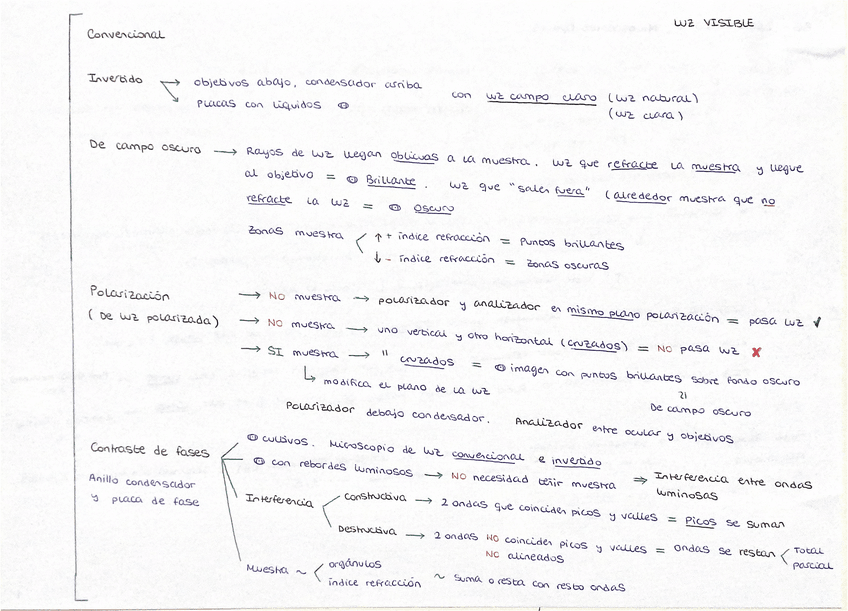 WZ VISIBLE
Convencional
Invertido → objetivos abajo, condensador arriba
↘ Placas con líquidos
con WZ campo claro (WZ natural)
(WZ clara)
De campo oscuro → Rayos de WZ llegan oblicuos a la muestra. WZ que refracte la muestra y llegue
al objetivo = Brillante. WZ que "sales fuera" (alrededor muestra que no
refracte la WZ = oscuro
Zonas muestra
↑ + índice refracción = Puntos brillantes
↓ - índice refracción = Zonas oscuras
Polarización → NO muestra → polarizador y analizador en mismo plano polarización = pasa WZ ✓
(De WZ polarizada) → NO muestra → uno vertical y otro horizontal (cruzados) = NO pasa WZ ✗
→ SI muestra → " cruzados = imagen con puntos brillantes sobre fondo oscuro
↳ modifica el plano de la WZ
De campo oscuro
Polarizador debajo condensador. Analizador entre ocular y objetivos
Contraste de fases
Anillo condensador
y placa de fase
cultivos. Microscopio de WZ convencional e invertido
con rebordes luminosos → NO necesidad teñir muestra ⇒ Interferencia entre ondas
luminosas
Interferencia
Constructiva → 2 ondas que coinciden picos y valles = Picos se suman
Destructiva → 2 ondas NO coinciden picos y valles = ondas se restan < Total
NO alineados
parcial
Muestra ~ < orgánulos
índice refracción ~ Suma o resta con resto ondas